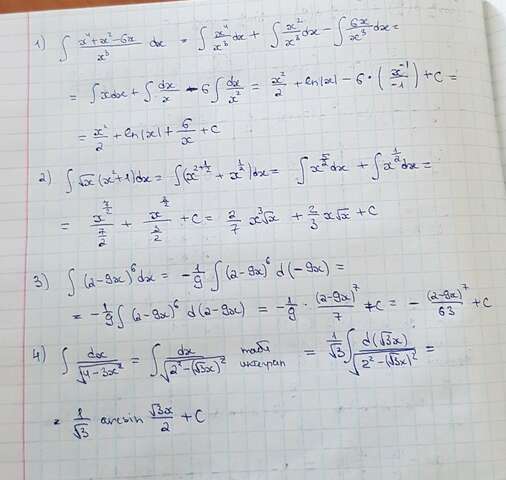 1) ∫ (x⁴+x²-6x)/x³ dx = ∫ x⁴/x³ dx + ∫ x²/x³ dx - ∫ 6x/x³ dx =
= ∫ x dx + ∫ dx/x - 6 ∫ dx/x² = x²/2 + ln|x| - 6 · (x⁻¹/-1) + C =
= x²/2 + ln|x| + 6/x + C
2) ∫ √x (x²+1)dx = ∫(x^(2+1/2) + x^(1/2))dx = ∫ x^(5/2) dx + ∫ x^(1/2) dx =
= x^(7/2)/(7/2) + + C = 2/7 x³√x + 2/3 x√x + C
3) ∫ (2-9x)⁶ dx = -1/9 ∫ (2-9x)⁶ d(-9x) =
= -1/9 ∫ (2-9x)⁶ d(2-9x) = -1/9 · (2-9x)⁷/7 + C = - (2-9x)⁷/63 + C
4) ∫ dx/√(4-3x²) = ∫ dx/√(2²-(√3x)²) табл интеграл = 1/√3 ∫ d(√3x)/√(2²-(√3x)²) =
= 1/√3 arcsin √3x/2 + C